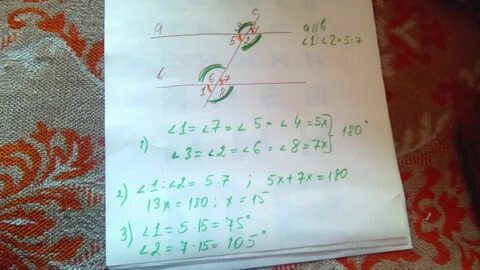 c
a 3 4 a || b
5 2 ∠1:∠2 = 5:7
b 6 7
1 8
1) ∠1 = ∠7 = ∠5 = ∠4 = 5x } 180°
∠3 = ∠2 = ∠6 = ∠8 = 7x
2) ∠1:∠2 = 5:7 ; 5x+7x = 180
13x = 180 ; x = 15
3) ∠1 = 5·15 = 75°
∠2 = 7·15 = 105°